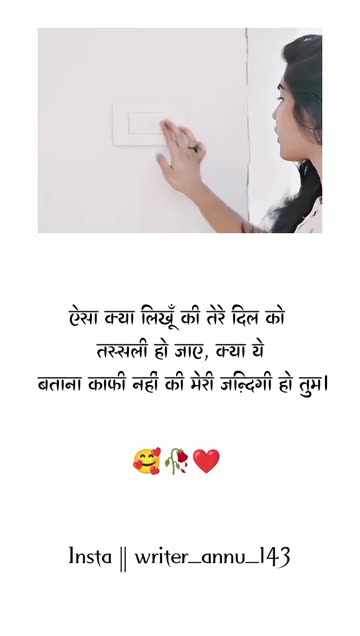 ऐसा क्या लिखूँ की तेरे दिल को
तस्सली हो जाए, क्या ये
बताना काफी नहीं की मेरी जन्दिगी हो तुम।
🥰🥀❤️
Insta || writer_annu_143